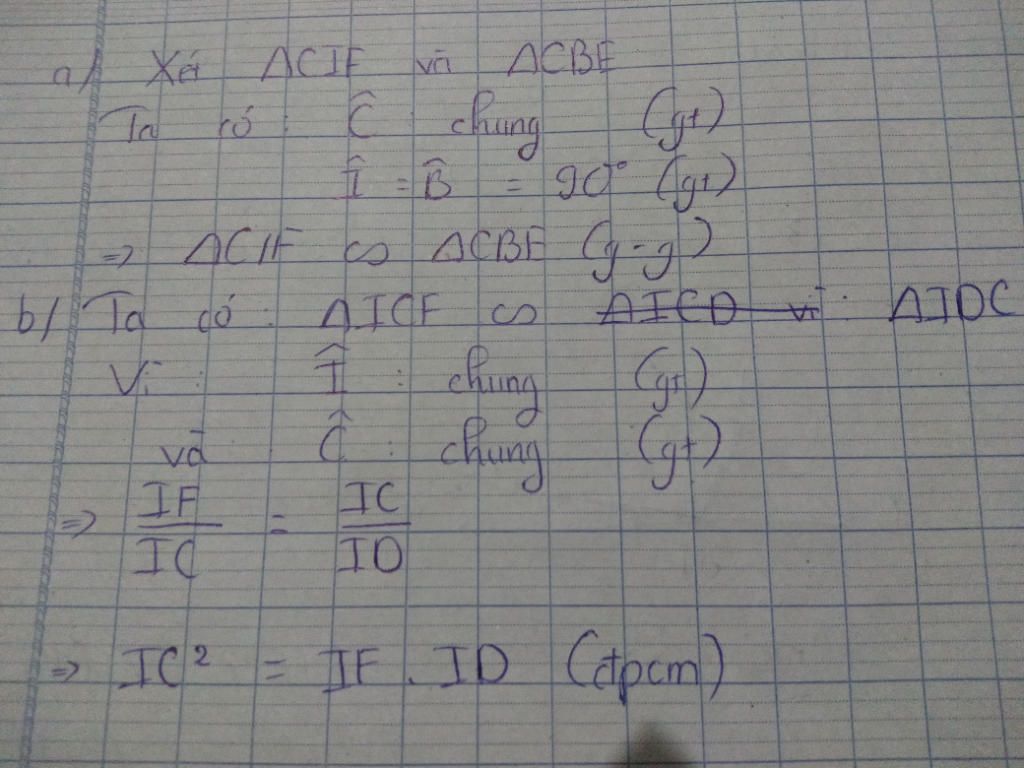 a) Xét ΔCIF và ΔCBE
Ta có: Ĉ chung (gt)
Î = B̂ = 90° (gt)
=> ΔCIF ∽ ΔCBE (g-g)
b) Ta có: ΔICF ∽ ΔICD vì: ΔIDC
Vì: Î : chung (gt)
và Ĉ : chung (gt)
=> IF/IC = IC/ID
=> IC² = IF . ID (đpcm)